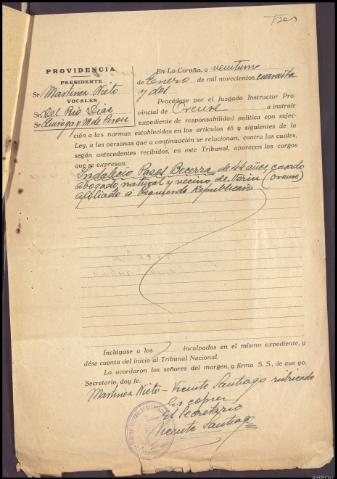 Tres
PROVIDENCIA
PRESIDENTE
Sr. Martinez Nieto
VOCALES
Sr. Del Rio Diaz
Sr.
En La Coruña, a veintiuno
de Enero de mil novecientos cuarenta
y dos
Procédase por el Juzgado Instructor Pro-
vincial de Orense a instruir
expediente de responsabilidad política con suje-
ción a las normas establecidas en los artículos 45 y siguientes de la
Ley, a las personas que a continuación se relacionan, contra las cuales,
según antecedentes recibidos, en este Tribunal, aparecen los cargos
que se expresan.
Indalecio Becerra de 44 años, casado
abogado, natural y vecino de Verin (Orense)
afiliado a Izquierda Republicana
Inclúyase a los inculpados en el mismo expediente, y
dése cuenta del inicio al Tribunal Nacional.
Lo acordaron los señores del margen, y firma S. S., de que yo,
Secretario, doy fe.
Martinez Nieto - Vicente Santiago rubricado
Es copia
El Secretario
Vicente Santiago